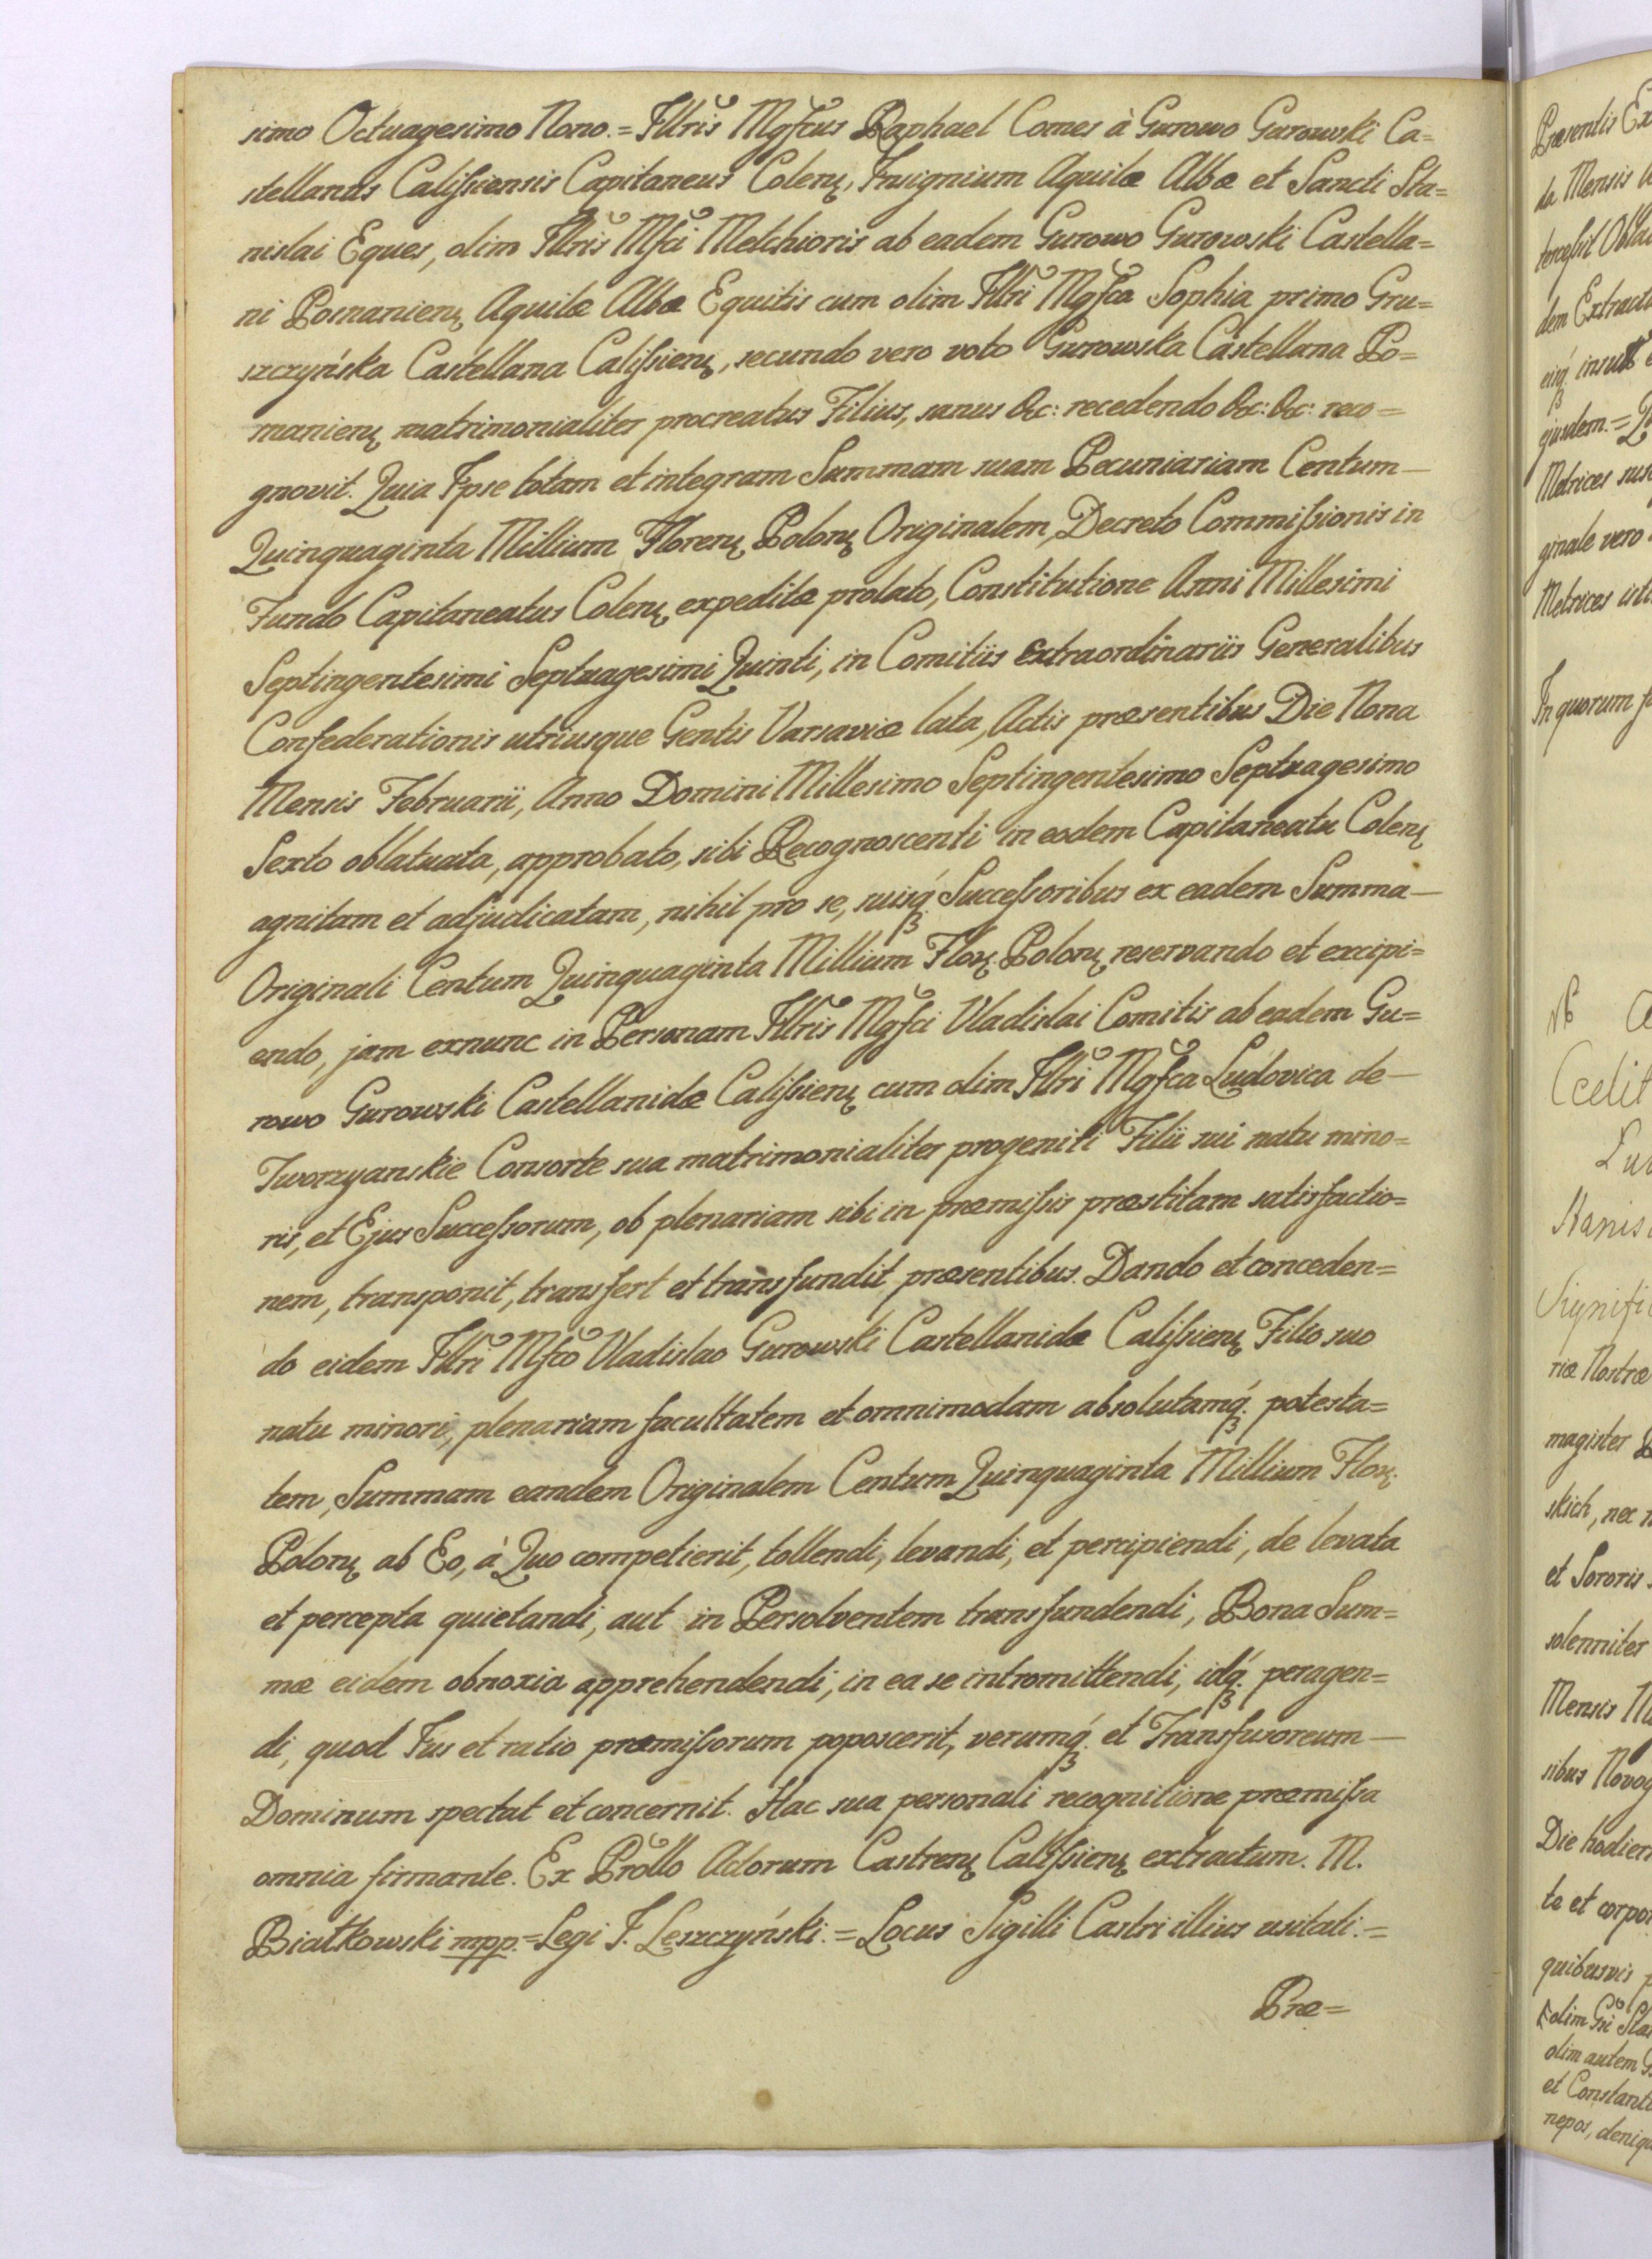 simo Octuagesimo Nono. = Illris Mgfcus Raphael Comes à Gurowo Gurowski Ca=
stellanus Calissiensis Capitaneus Colenʒ, Insignium Aquilæ Albæ et Sancti Sta=
nislai Eques, olim Illris Mfci Melchioris ab eadem Gurowo Gurowski Castella=
ni Posnanienʒ Aquilæ Albæ Equitis cum olim Illri Mgfca Sophia primo Gru=
szczyńska Castellana Calissienʒ, secundo vero voto Gurowska Castellana Po=
manienʒ matrimonialiter procreatus Filius, sanus &c: recedendo &c: &c: reco=
gnovit. Quia Ipse totam et integram Summam suam Pecuniariam Centum —
Quinquaginta Millium Florenʒ Polonʒ Originalem, Decreto Commissionis in
Fundo Capitaneatus Colenʒ expeditæ prolato, Constitutione Anni Millesimi
Septingentesimi Septuagesimi Quinti, in Comitiis extraordinariis Generalibus
Confederationis utriusque Gentis Varsaviæ lata, Actis præsentibus Die Nona
Mensis Februarii, Anno Domini Millesimo Septingentesimo Septuagesimo
Sexto oblatuata, approbato, sibi Recognoscenti in eodem Capitaneatu Colenʒ
agnitam et adjudicatam, nihil pro se, suisqʒ Successoribus ex eadem Summa —
Originali Centum Quinquaginta Millium Florʒ Polonʒ reservando et excipi=
endo, jam exnunc in Personam Illris Mgfci Vladislai Comitis ab eadem Gu=
rowo Gurowski Castellanidæ Calissienʒ cum olim Illri Mgfca Ludovica de —
Tworzyanskie Consorte sua matrimonialiter progeniti Filii sui natu mino=
ris, et Ejus Successorum, ob plenariam sibi in præmissis præstitam satisfactio=
nem, transponit, transfert et transfundit præsentibus. Dando et conceden=
do eidem Illri Mfco Vladislao Gurowski Castellanidæ Calissienʒ Filio suo
natu minori, plenariam facultatem et omnimodam absolutamqʒ potesta=
tem, Summam eandem Originalem Centum Quinquaginta Millium Florʒ
Polonʒ ab Eo, à Quo competierit, tollendi, levandi, et percipiendi, de levata
et percepta quietandi, aut in Persolventem transfundendi, Bona Sum=
mæ eidem obnoxia apprehendendi, in ea se intromittendi, idqʒ peragen=
di, quod Jus et ratio præmissorum poposcerit, verumqʒ et Transfusoreum —
Dominum spectat et concernit. Hac sua personali recognitione præmissa
omnia firmante. Ex Prollo Actorum Castrenʒ Calissienʒ extractum. M.
Białkowski mpp. = Legi J. Leszczyński. = Locus Sigilli Castri illius usitati. =
Præ=